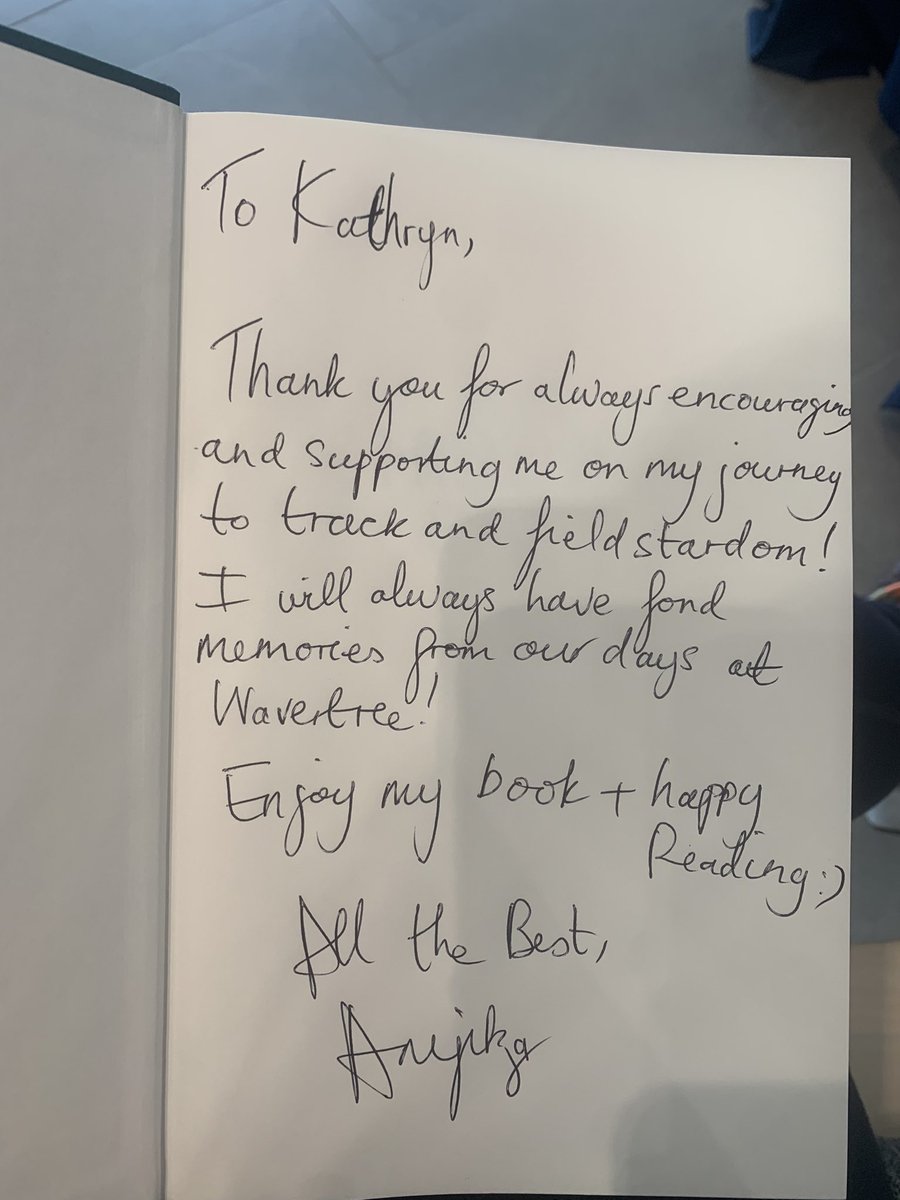 To Kathryn,
Thank you for always encouraging
and supporting me on my journey
to track and field stardom!
I will always have fond
memories from our days at
Wavertree!
Enjoy my book + happy
Reading :)
All the Best,